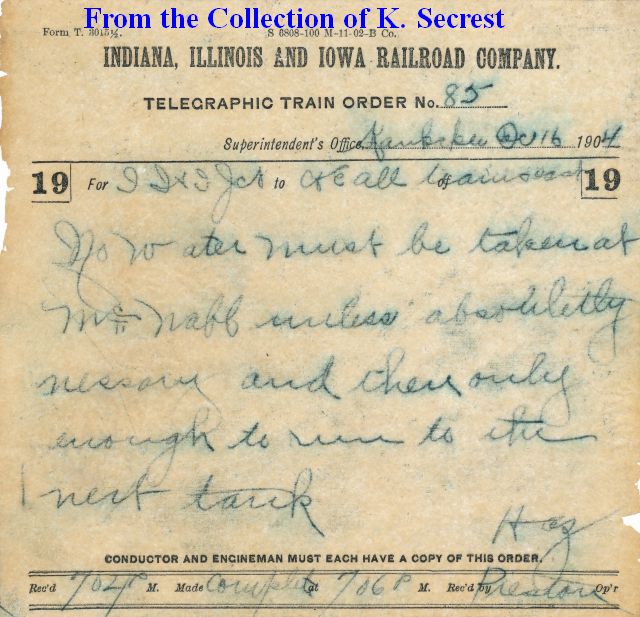 From the Collection of K. Secrest
Form T. 3015½. S 6808-100 M-11-02-B Co.
INDIANA, ILLINOIS AND IOWA RAILROAD COMPANY.
TELEGRAPHIC TRAIN ORDER No. 85
Superintendent's Office, Kankakee Oct 16 1904
19 For I I & I Jct to C & E all trains east of 19
No water must be taken at
McNabb unless absolutely
nessary and then only
enough to run to the
next tank
CONDUCTOR AND ENGINEMAN MUST EACH HAVE A COPY OF THIS ORDER.
Rec'd 704P M. Made Complete at 706P M. Rec'd by Preston Op'r